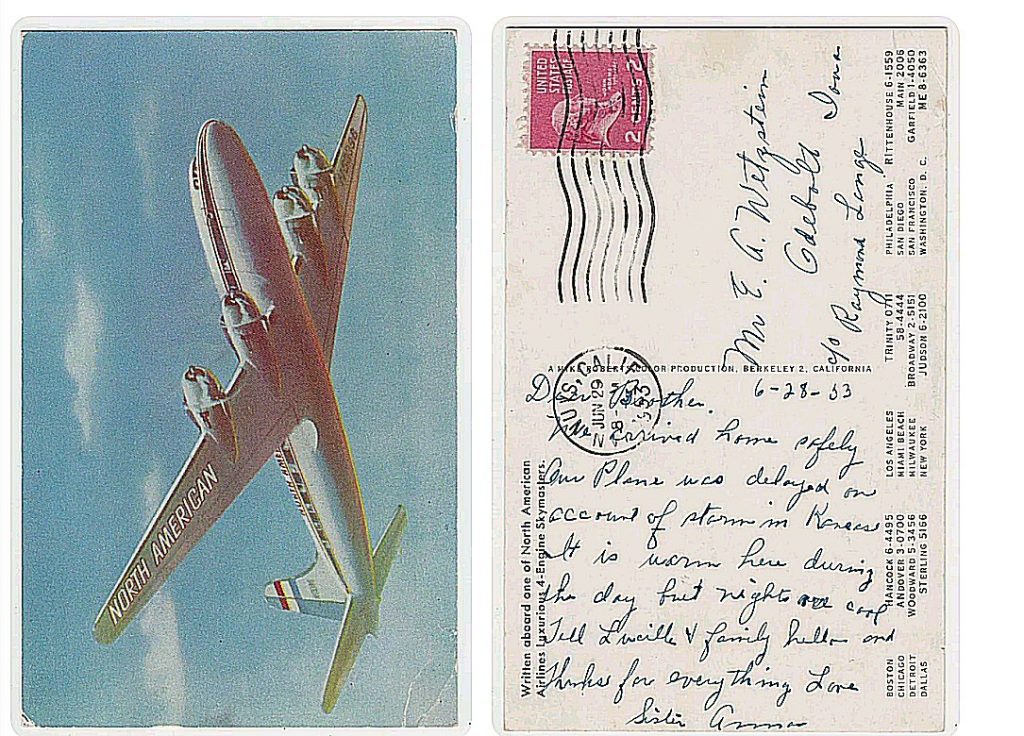 NORTH AMERICAN
UNITED
STATES
POSTAGE
2 CENTS 2
Mr E. A. Wetzstein
Odebolt Iowa
c/o Raymond Lange
NUYS, CALIF
JUN 29
1953
6-28-53
Dear Brother,
We arrived home safely
Our Plane was delayed on
account of storm in Kansas
It is warm here during
the day but nights are cool
Tell Lucille & family hello and
thanks for everything Love
Sister Anna
Written aboard one of North American
Airlines Luxurious 4-Engine Skymasters.
COLOR PRODUCTION, BERKELEY 2, CALIFORNIA
BOSTON HANCOCK 6-4495
CHICAGO ANDOVER 3-0700
DETROIT WOODWARD 5-3456
DALLAS STERLING 5166
LOS ANGELES TRINITY 0711
MIAMI BEACH 58-4444
MILWAUKEE BROADWAY 2-5151
NEW YORK JUDSON 6-2100
PHILADELPHIA RITTENHOUSE 6-1559
SAN DIEGO MAIN 2006
SAN FRANCISCO GARFIELD 1-4050
WASHINGTON, D. C. ME 8-6363